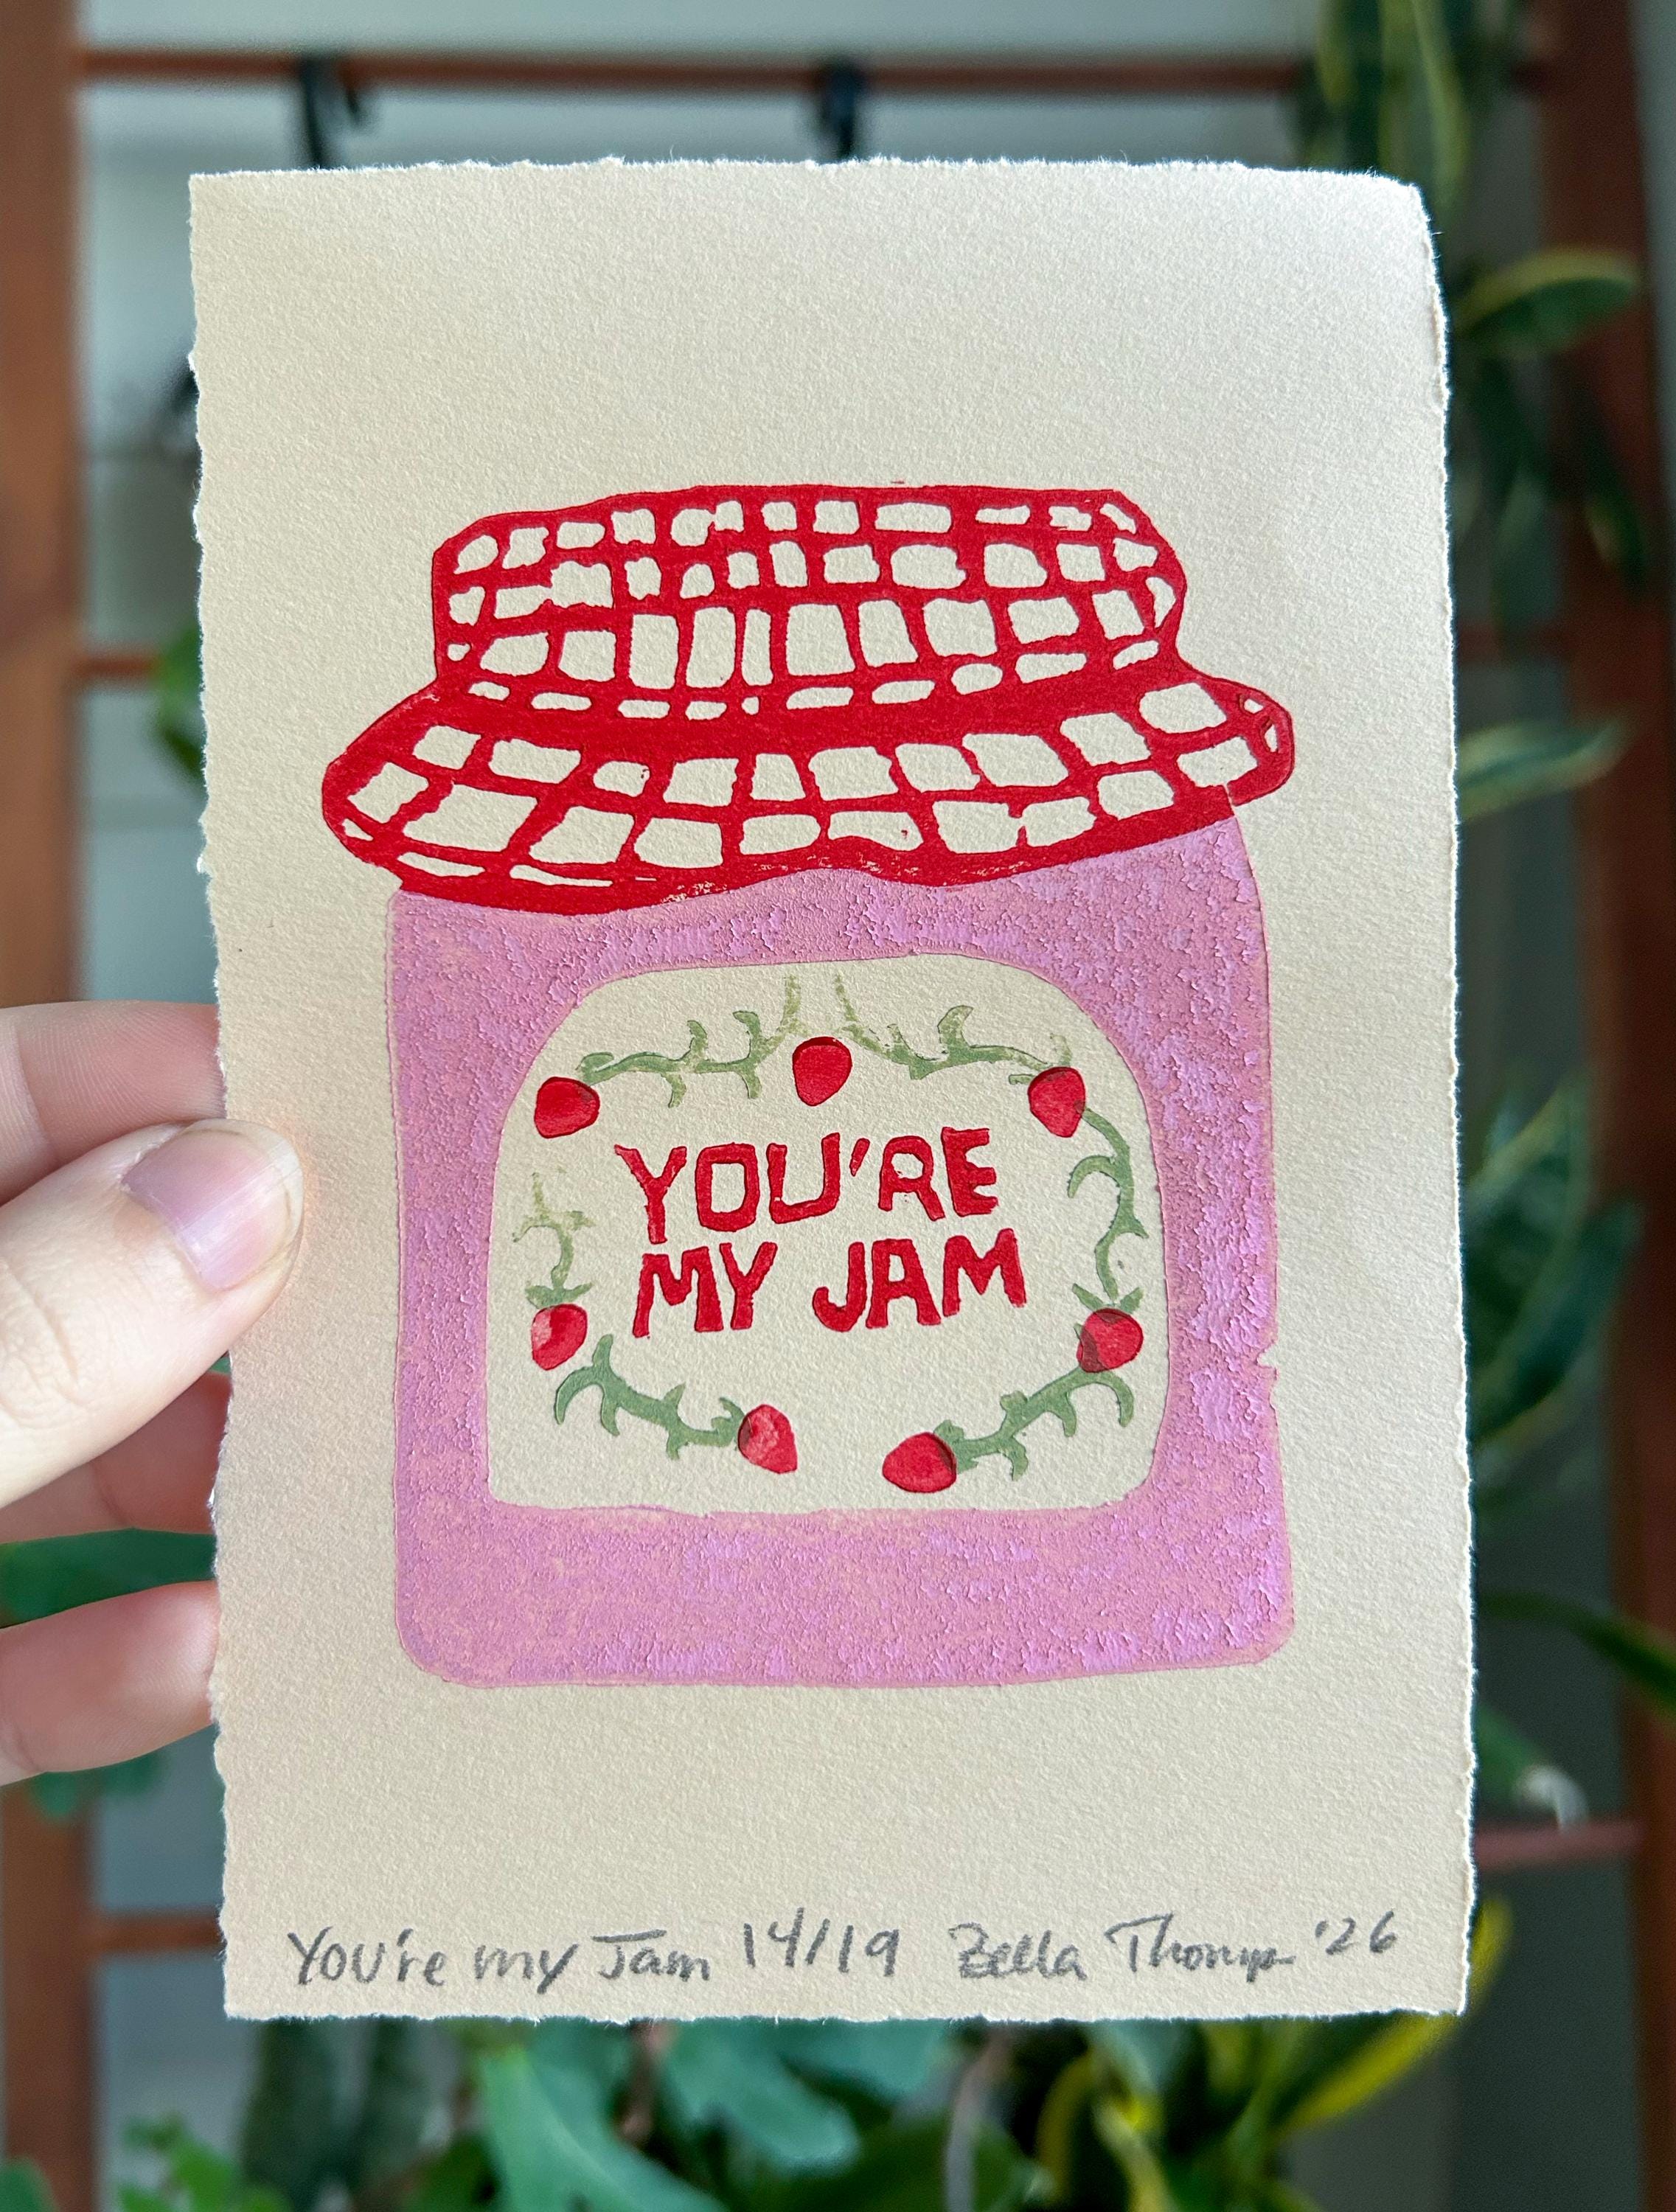 YOU'RE
MY JAM
You're my Jam 14/19 Zella Thomp '26